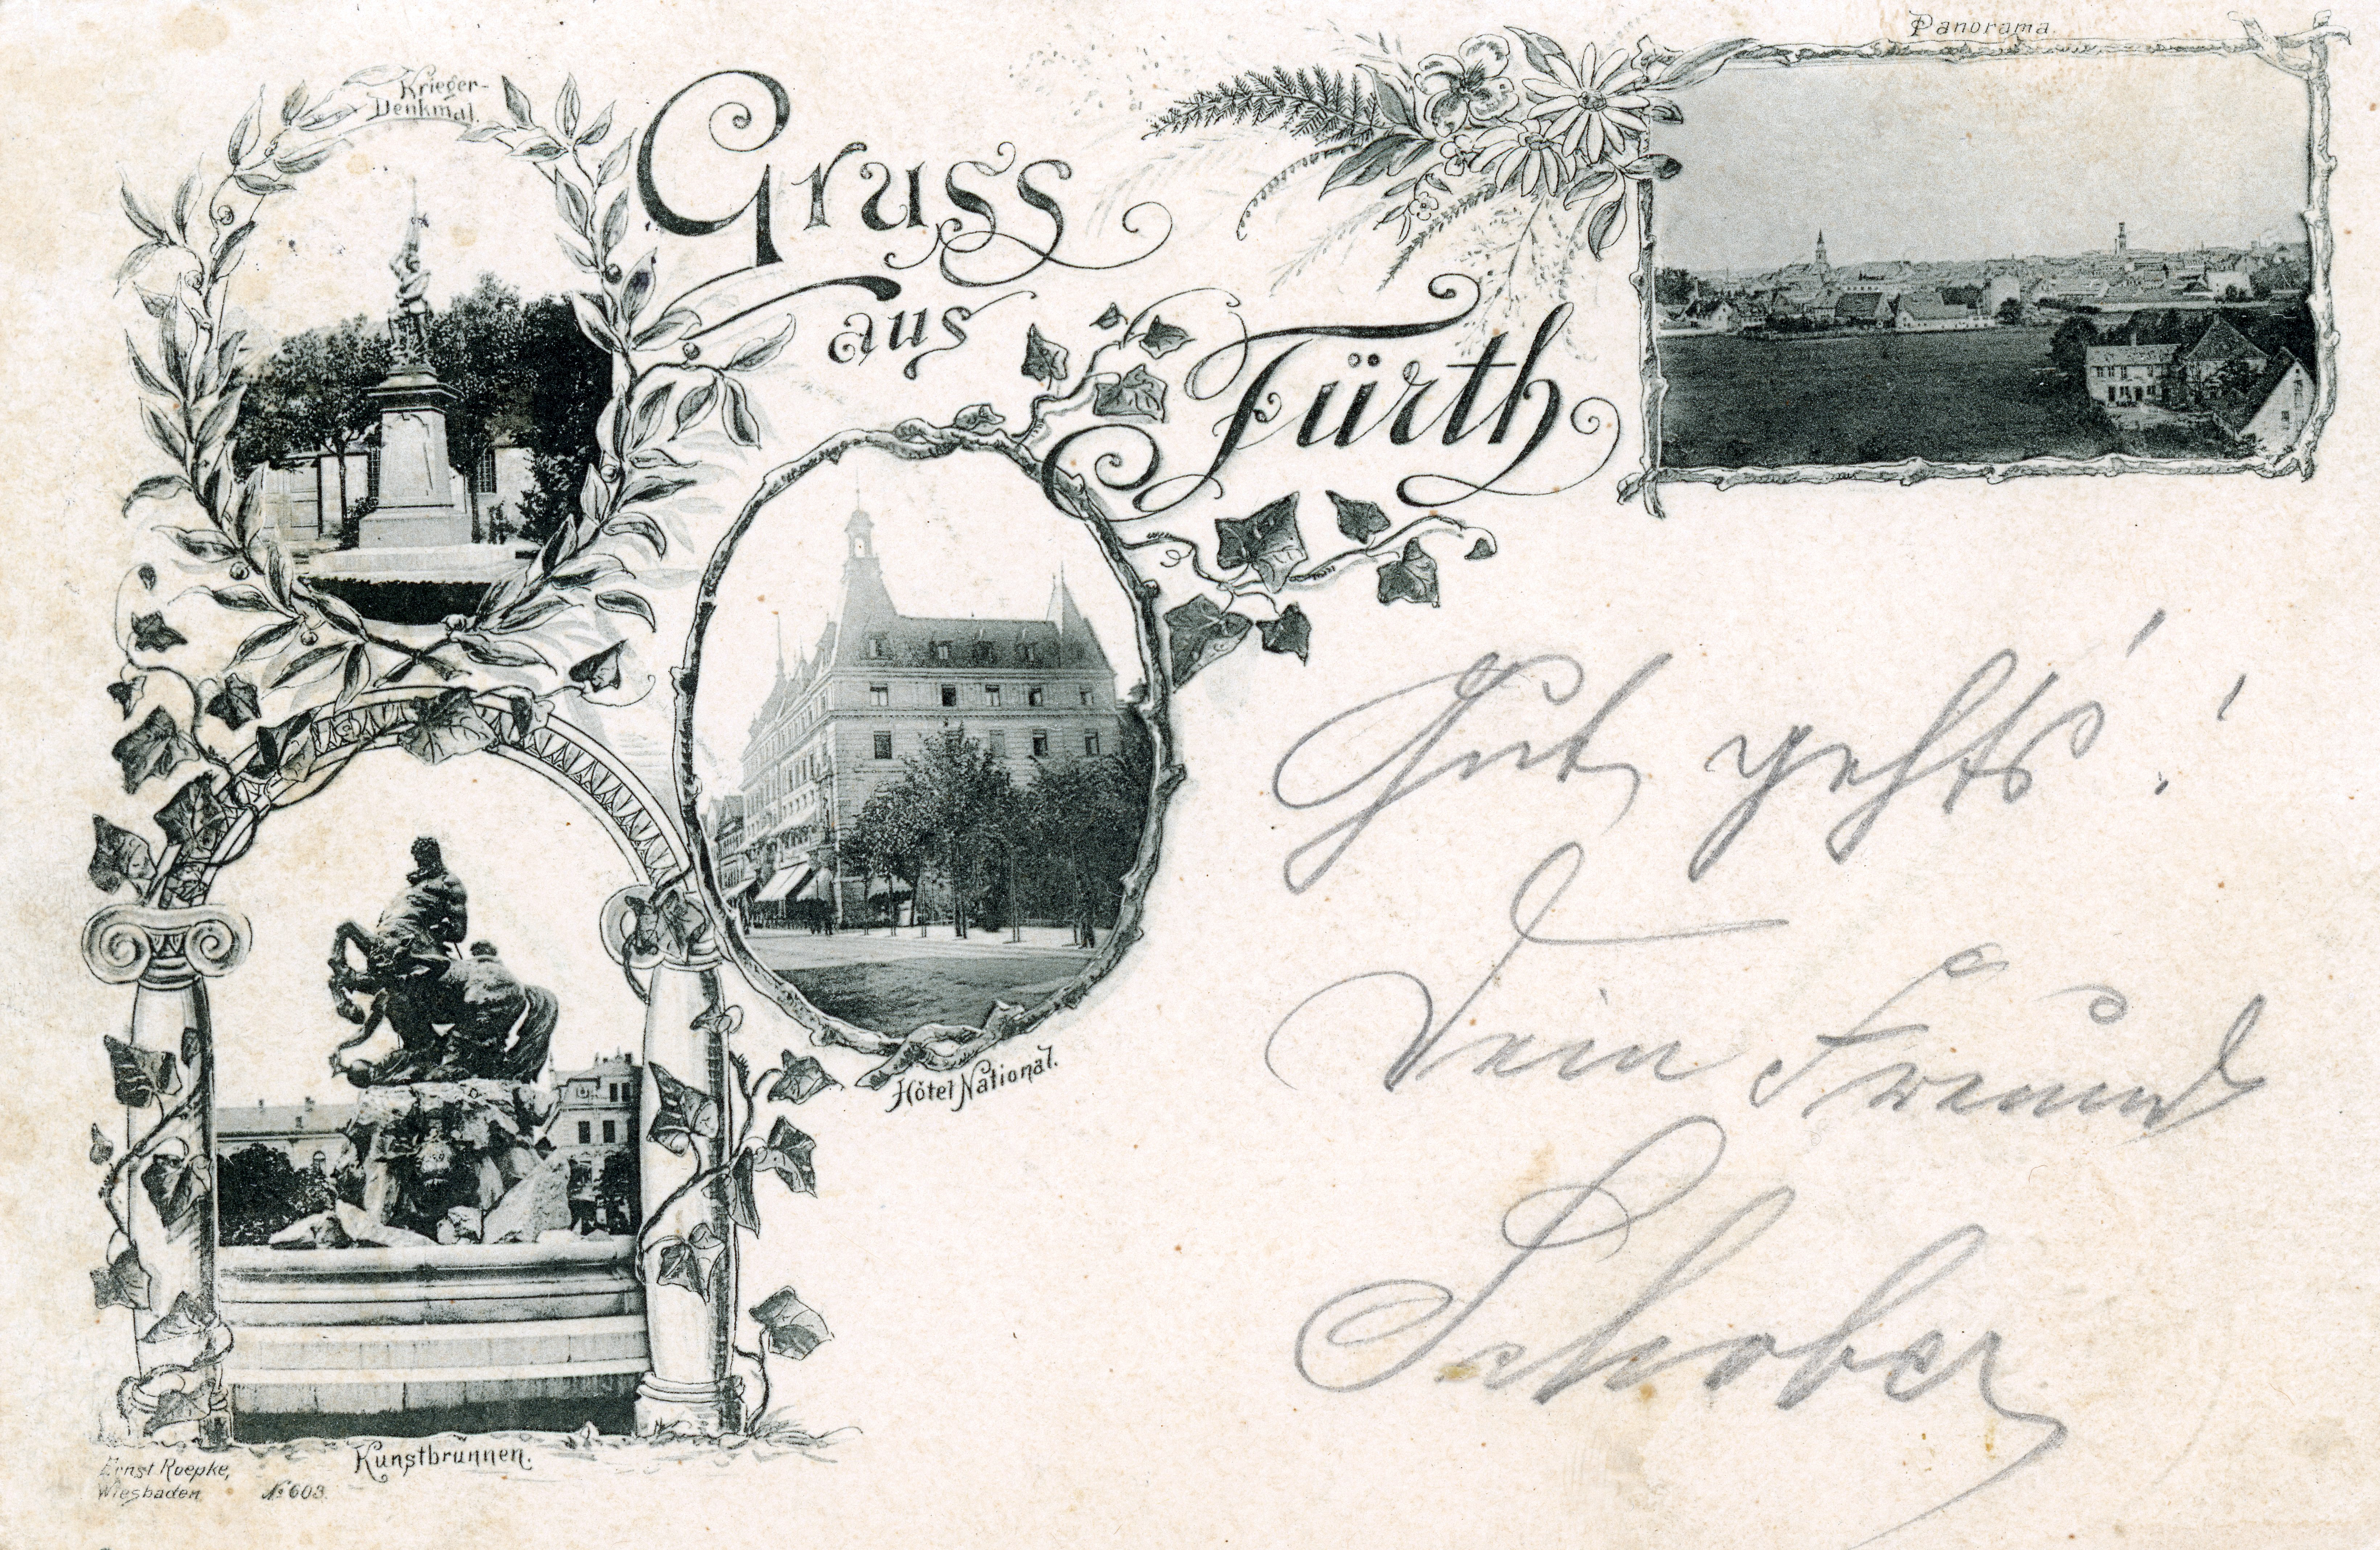 Krieger-
Denkmal.
Gruss
aus
Fürth
Panorama.
Hôtel National.
Kunstbrunnen.
Ernst Roepke,
Wiesbaden
№ 603.
Gut gehts'!
Dein Freund
Schober